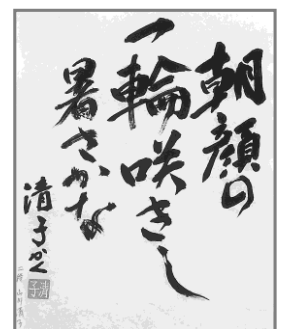 朝顔の
一輪咲きし
暑さかな
清子かく